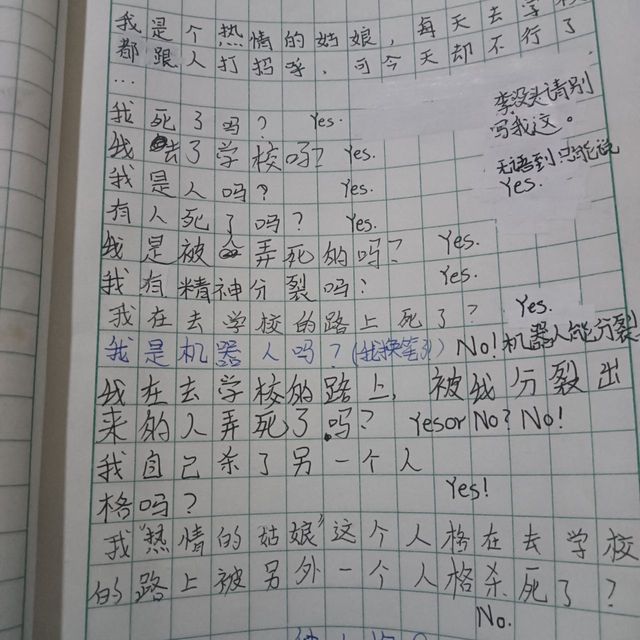 我是个热情的姑娘，每天去学校
都跟人打招呼，可今天却不行了
...
李没头请别
写我这。
我死了吗？ Yes.
我去了学校吗？ Yes.
无语到只能说
我是人吗？ Yes. Yes.
有人死了吗？ Yes.
我是被弄死的吗？ Yes.
我有精神分裂吗？ Yes.
我在去学校的路上死了？ Yes.
我是机器人吗？(我换笔了) No!机器人能分裂
我在去学校的路上，被我分裂出
来的人弄死了吗？ Yes or No? No!
我自己杀了另一个人
格吗？ Yes!
我“热情的姑娘”这个人格在去学校
的路上被另外一个人格杀死了？
No.